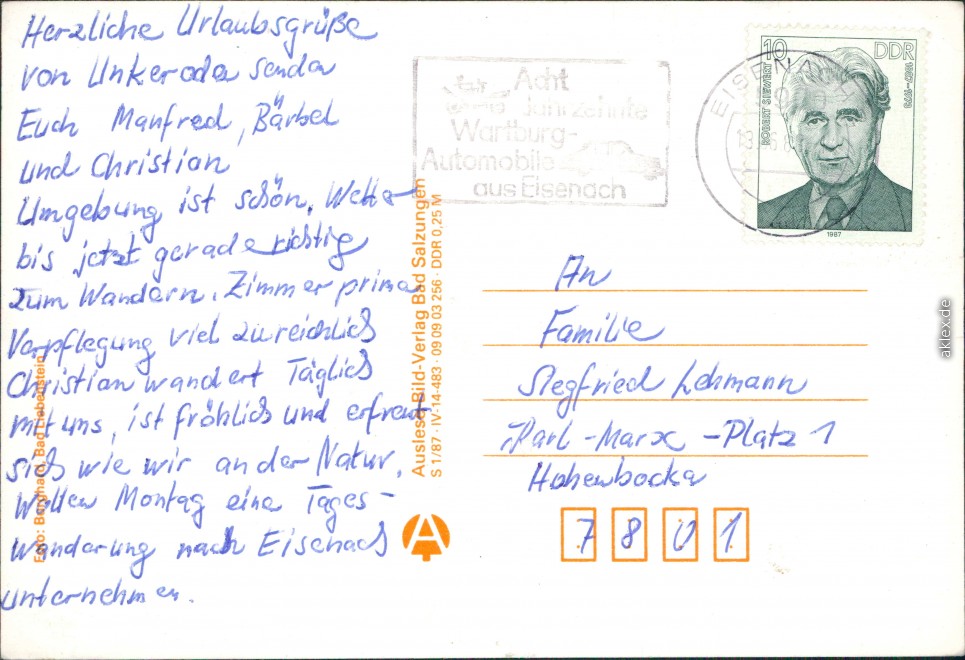 Herzliche Urlaubsgrüße
von Unkeroda senden
Euch Manfred, Bärbel
und Christian
Umgebung ist schön, Wetter
bis jetzt gerade richtig
zum Wandern. Zimmer prima
Verpflegung viel zu reichlich
Christian wandert Täglich
mit uns, ist fröhlich und erfreut
sich wie wir an der Natur.
Wollen Montag eine Tages-
wanderung nach Eisenach
unternehmen.
Foto: Burghard, Bad Liebenstein
Auslese-Bild-Verlag Bad Salzungen
S 1/87 · IV-14-483 · 09 09 03 256 · DDR 0,25 M
Acht
Jahrzehnte
Wartburg-
Automobile
aus Eisenach
EISENACH
10 DDR
ROBERT SIEWERT
1887-1973
1987
An
Familie
Siegfried Lehmann
Karl-Marx-Platz 1
Hohenbocka
7801
akleX.de